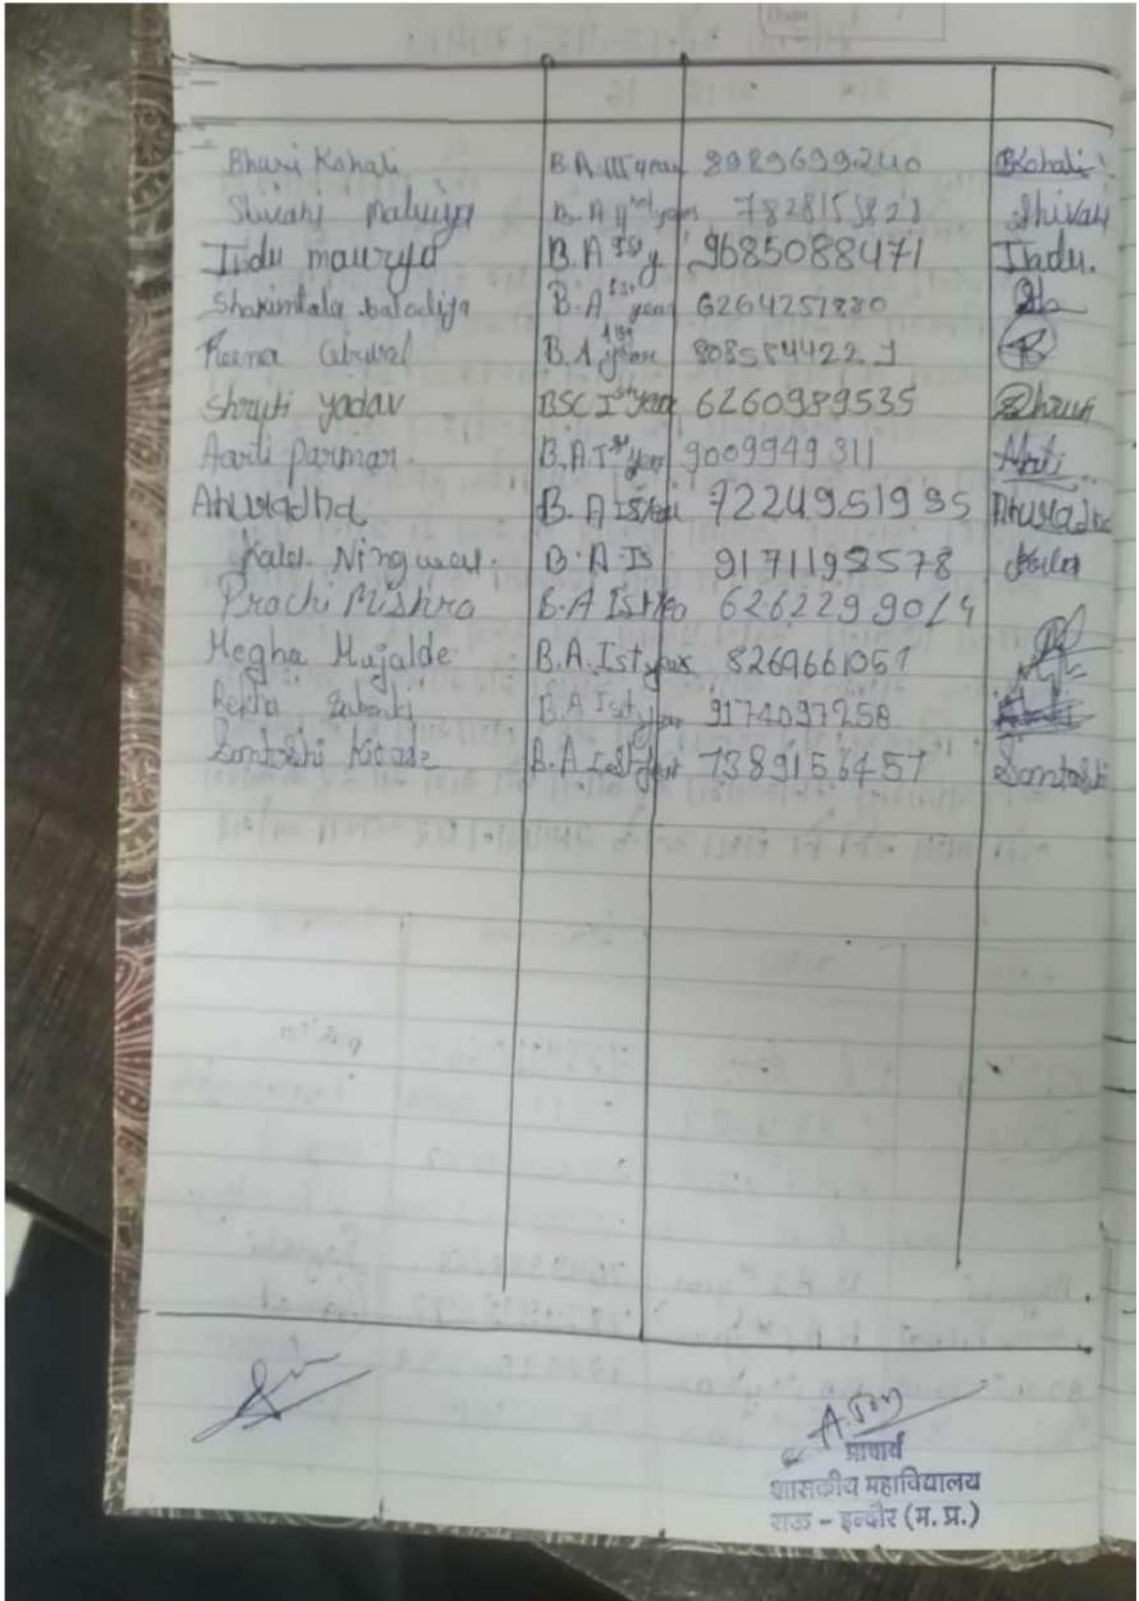 Bhuri Kohali B.A III year 8989699240 BKohali
Shivani Malviya B.A year 7828155828 Shivani
Indu maurya B.A Ist y 9685088471 Indu.
Shakuntala B.A Ist year 6264257880
Reena B.A 1st year 8085544229
Shruti yadav BSC Ist year 6260989535 Shruti
Aarti parmar. B.A Ist year 9009949311 Arti
Anuradha B.A Ist 7224951995 Anuradha
Kala Ningwal. B.A Is 9171198578 Kala
Prachi Mishra B.A Ist 6262299014
Megha Mujalde B.A. Ist year 8269661051
Rekha B.A Ist year 9174097258
Santoshi B.A Ist year 7389156457 Santoshi
प्राचार्य
शासकीय महाविद्यालय
राऊ - इन्दौर (म. प्र.)